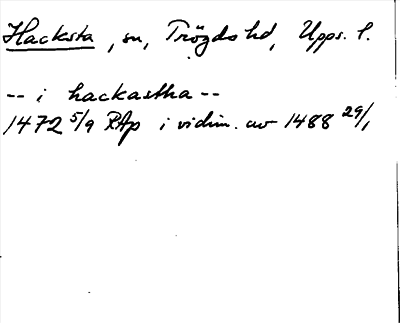 Hacksta, sn, Trögds hd, Upps. l.
-- i hackastha --
1472 5/9 RAp i vidim. av 1488 29/1